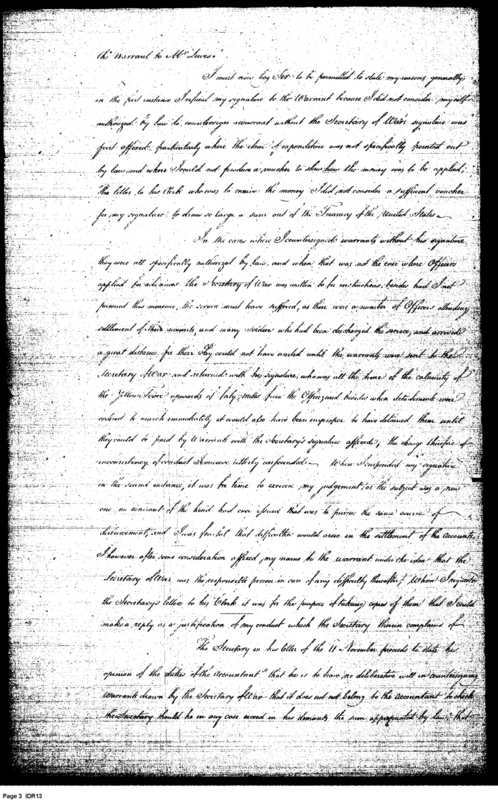 the Warrant to Mr Lewis.
I must now beg Sir to be permitted to state my reasons generally,
in the first instance I refused my signature to the Warrant because I did not consider myself
authorized by law to countersign a warrant without the Secretary of War's signature was
first affixed, particularly where the item of expenditure was not specifically pointed out
by law and where I could not produce a voucher to shew how the money was to be applied;
the letter to his Clerk who was to receive the money I did not consider a sufficient voucher
for my signature to draw so large a sum out of the Treasury of the United States.
In the cases where I countersigned warrants without his signature
they were all specifically authorized by law, and when that was not the case where Officers
applied for advances the Secretary of War was written to for instructions, besides had I not
pursued this measure, the service must have suffered, as there were a number of Officers attending
settlement of their accounts, and many soldiers who had been discharged the service, and arrived
a great distance for their Pay could not have waited until the warrants were sent to the
Secretary of War and returned with his signature, who was all the time of the calamity of
the Yellow Fever upwards of sixty miles from the Office, and besides when detachments were
ordered to march immediately it would also have been improper to have detained them until
they could be paid by Warrants with the Secretary's signature affixed; the charge therefore of
inconsistency of conduct I conceive utterly unfounded. When I suspended my signature
in the second instance, it was for time to exercise my judgement, as the subject was a new
one no warrant of the kind had ever issued that was to pursue the same course of
disbursement, and I was fearful that difficulties would arise in the settlement of the accounts,
I however after some consideration affixed my name to the warrant under the idea that the
Secretary of War was the responsible person in case of any difficulty thereafter; When I requested
the Secretary's letters to his Clerk it was for the purpose of taking copies of them that I could
make a reply as a justification of my conduct which the Secretary therein complains of
The Secretary in his letter of the 11 November proceeds to state his
opinion of the duties of the accountant "that he is to have no deliberative will in countersigning
warrants drawn by the Secretary of War that it does not belong to the accountant to check
the Secretary should he in any case exceed in his demands the sum appropriated by law; that
Page 3 IDR13